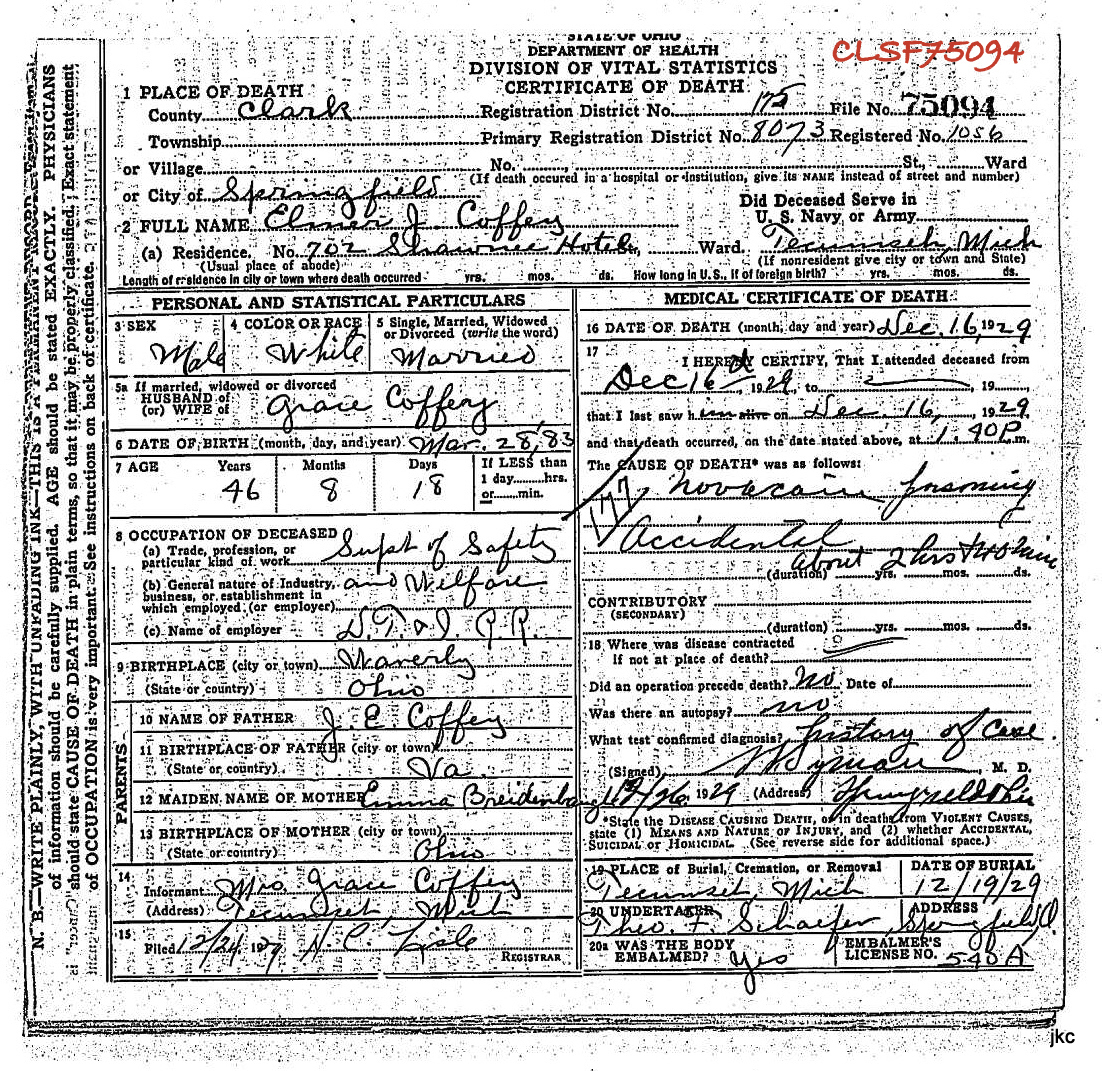 CLSF75094
STATE OF OHIO
DEPARTMENT OF HEALTH
DIVISION OF VITAL STATISTICS
CERTIFICATE OF DEATH
1 PLACE OF DEATH
County Clark Registration District No. 175 File No. 75094
Township Primary Registration District No. 8073 Registered No. 1056
or Village No. St., Ward
(If death occured in a hospital or institution, give its NAME instead of street and number)
or City of Springfield
Did Deceased Serve in
U. S. Navy or Army
2 FULL NAME Elmer J. Coffery
(a) Residence. No. 702 Shawnee Hotel, Ward. Tecumseh, Mich
(Usual place of abode) (If nonresident give city or town and State)
Length of residence in city or town where death occurred yrs. mos. ds. How long in U.S., if of foreign birth? yrs. mos. ds.
PERSONAL AND STATISTICAL PARTICULARS
3 SEX 4 COLOR OR RACE 5 Single, Married, Widowed
or Divorced (write the word)
Male White Married
5a If married, widowed or divorced
HUSBAND of
(or) WIFE of Grace Coffery
6 DATE OF BIRTH (month, day, and year) Mar. 28, 83
7 AGE Years Months Days If LESS than
1 day hrs.
or min.
46 8 18
8 OCCUPATION OF DECEASED
(a) Trade, profession, or
particular kind of work Supt of Safety
(b) General nature of Industry,
business, or establishment in
which employed (or employer) and Welfare
(c) Name of employer D. T. & I. R.R.
9 BIRTHPLACE (city or town) Waverly
(State or country) Ohio
PARENTS
10 NAME OF FATHER J. E Coffery
11 BIRTHPLACE OF FATHER (city or town)
(State or country) Va.
12 MAIDEN NAME OF MOTHER Emma Breidenbaugh
13 BIRTHPLACE OF MOTHER (city or town)
(State or country) Ohio
14
Informant Mrs. Grace Coffery
(Address) Tecumset, Mich
15
Filed 12/24 1929 H. C. Lisle
REGISTRAR
MEDICAL CERTIFICATE OF DEATH
16 DATE OF DEATH (month, day and year) Dec. 16, 1929
17
I HEREBY CERTIFY, That I attended deceased from
Dec 16, 1929, to , 19
that I last saw him alive on Dec. 16, 1929
and that death occurred, on the date stated above, at 1.40 P.m.
The CAUSE OF DEATH* was as follows:
177 Novacain poisoning
Accidental
about 2 hrs + 40 min
(duration) yrs. mos. ds.
CONTRIBUTORY
(SECONDARY)
(duration) yrs. mos. ds.
18 Where was disease contracted
if not at place of death?
Did an operation precede death? No Date of
Was there an autopsy? no
What test confirmed diagnosis? history of case.
(Signed) Wyman, M. D.
12/26, 1929 (Address) Springfield Ohio
*State the DISEASE CAUSING DEATH, or in deaths from VIOLENT CAUSES,
state (1) MEANS AND NATURE OF INJURY, and (2) whether ACCIDENTAL,
SUICIDAL or HOMICIDAL. (See reverse side for additional space.)
19 PLACE of Burial, Cremation, or Removal DATE OF BURIAL
Tecumset, Mich 12/19/29
20 UNDERTAKER ADDRESS
Theo. F Schaefer, Springfield O.
20a WAS THE BODY
EMBALMED? Yes
EMBALMER'S
LICENSE NO. 540 A
N. B.—WRITE PLAINLY, WITH UNFADING INK—THIS IS A PERMANENT RECORD. Every item
of information should be carefully supplied. AGE should be stated EXACTLY. PHYSICIANS
should state CAUSE OF DEATH in plain terms, so that it may be properly classified. Exact statement
of OCCUPATION is very important. See instructions on back of certificate.
jkc